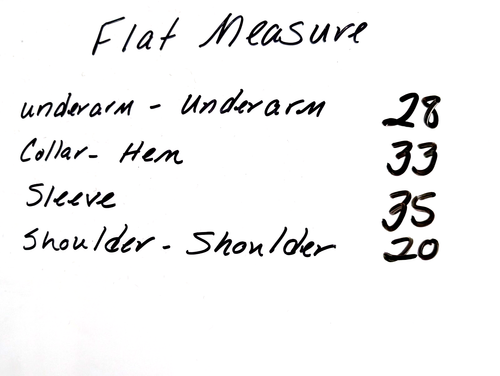 Flat Measure
underarm - Underarm 28
Collar- Hem 33
Sleeve 35
Shoulder - Shoulder 20